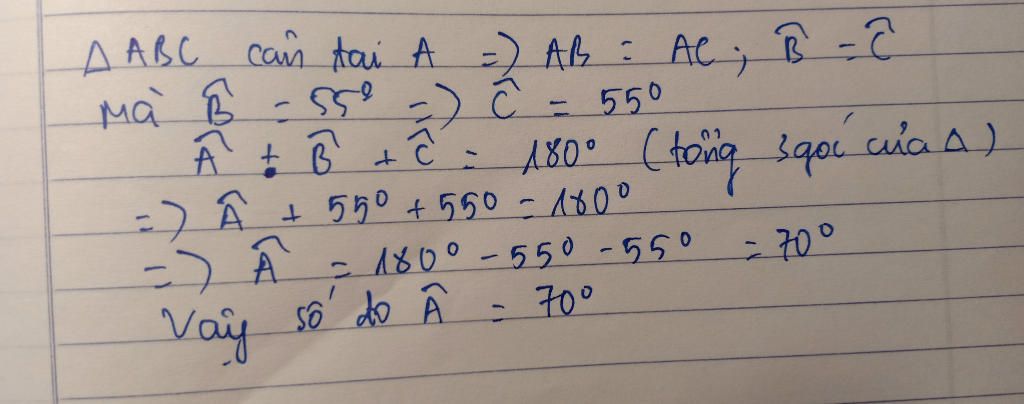 Δ ABC cân tại A => AB = AC; B̂ = Ĉ
Mà B̂ = 55° => Ĉ = 55°
Â + B̂ + Ĉ = 180° (tổng 3 góc của Δ)
=> Â + 55° + 55° = 180°
=> Â = 180° - 55° - 55° = 70°
Vậy số đo Â = 70°